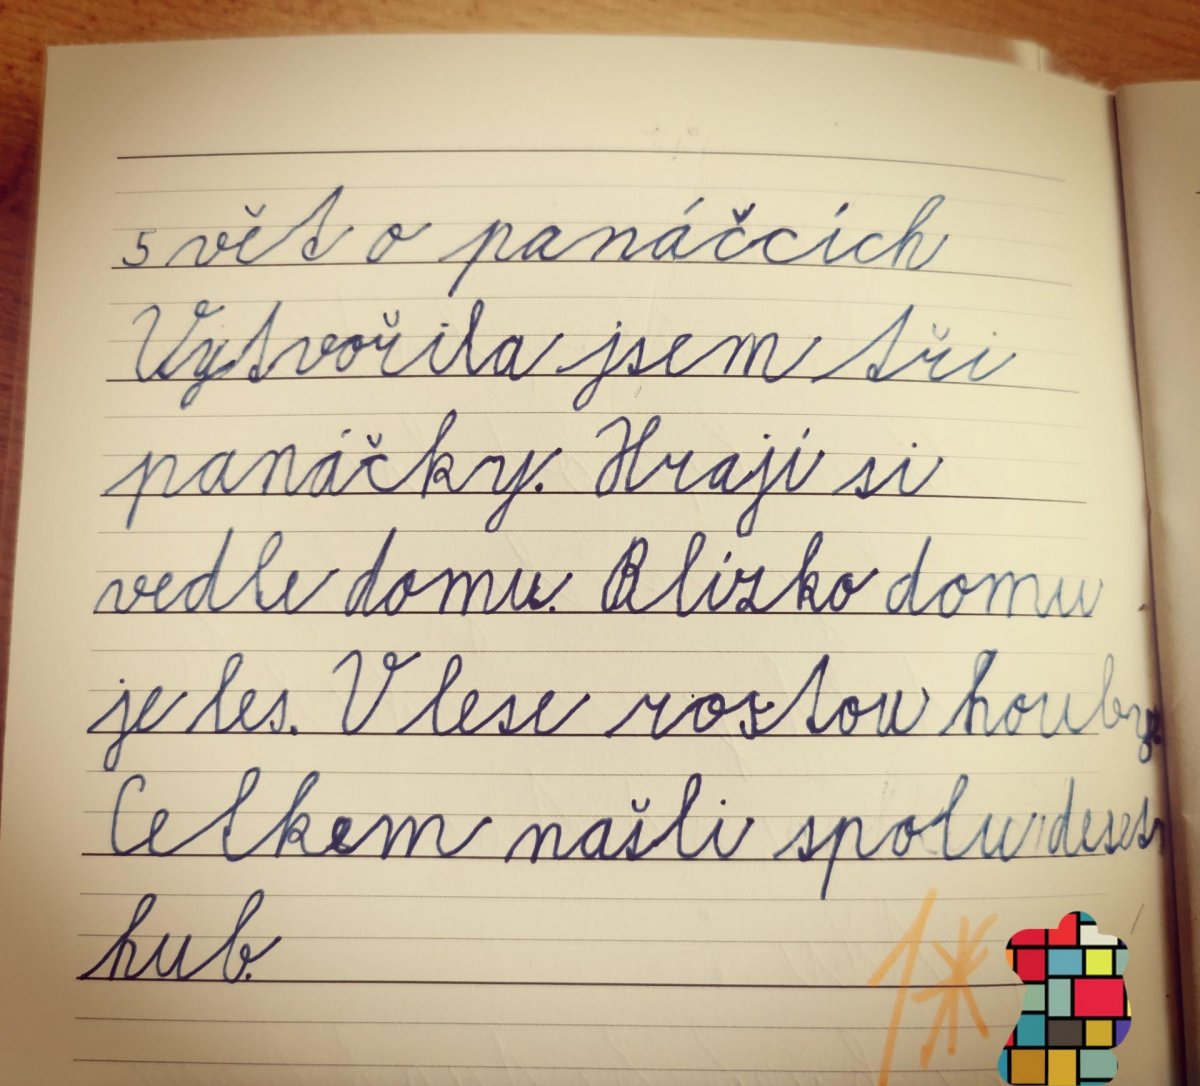 5 vět o panáčcích
Vytvořila jsem tři
panáčky. Hrají si
vedle domu. Blízko domu
je les. V lese rostou houby.
Celkem našli spolu deset
hub.
1*